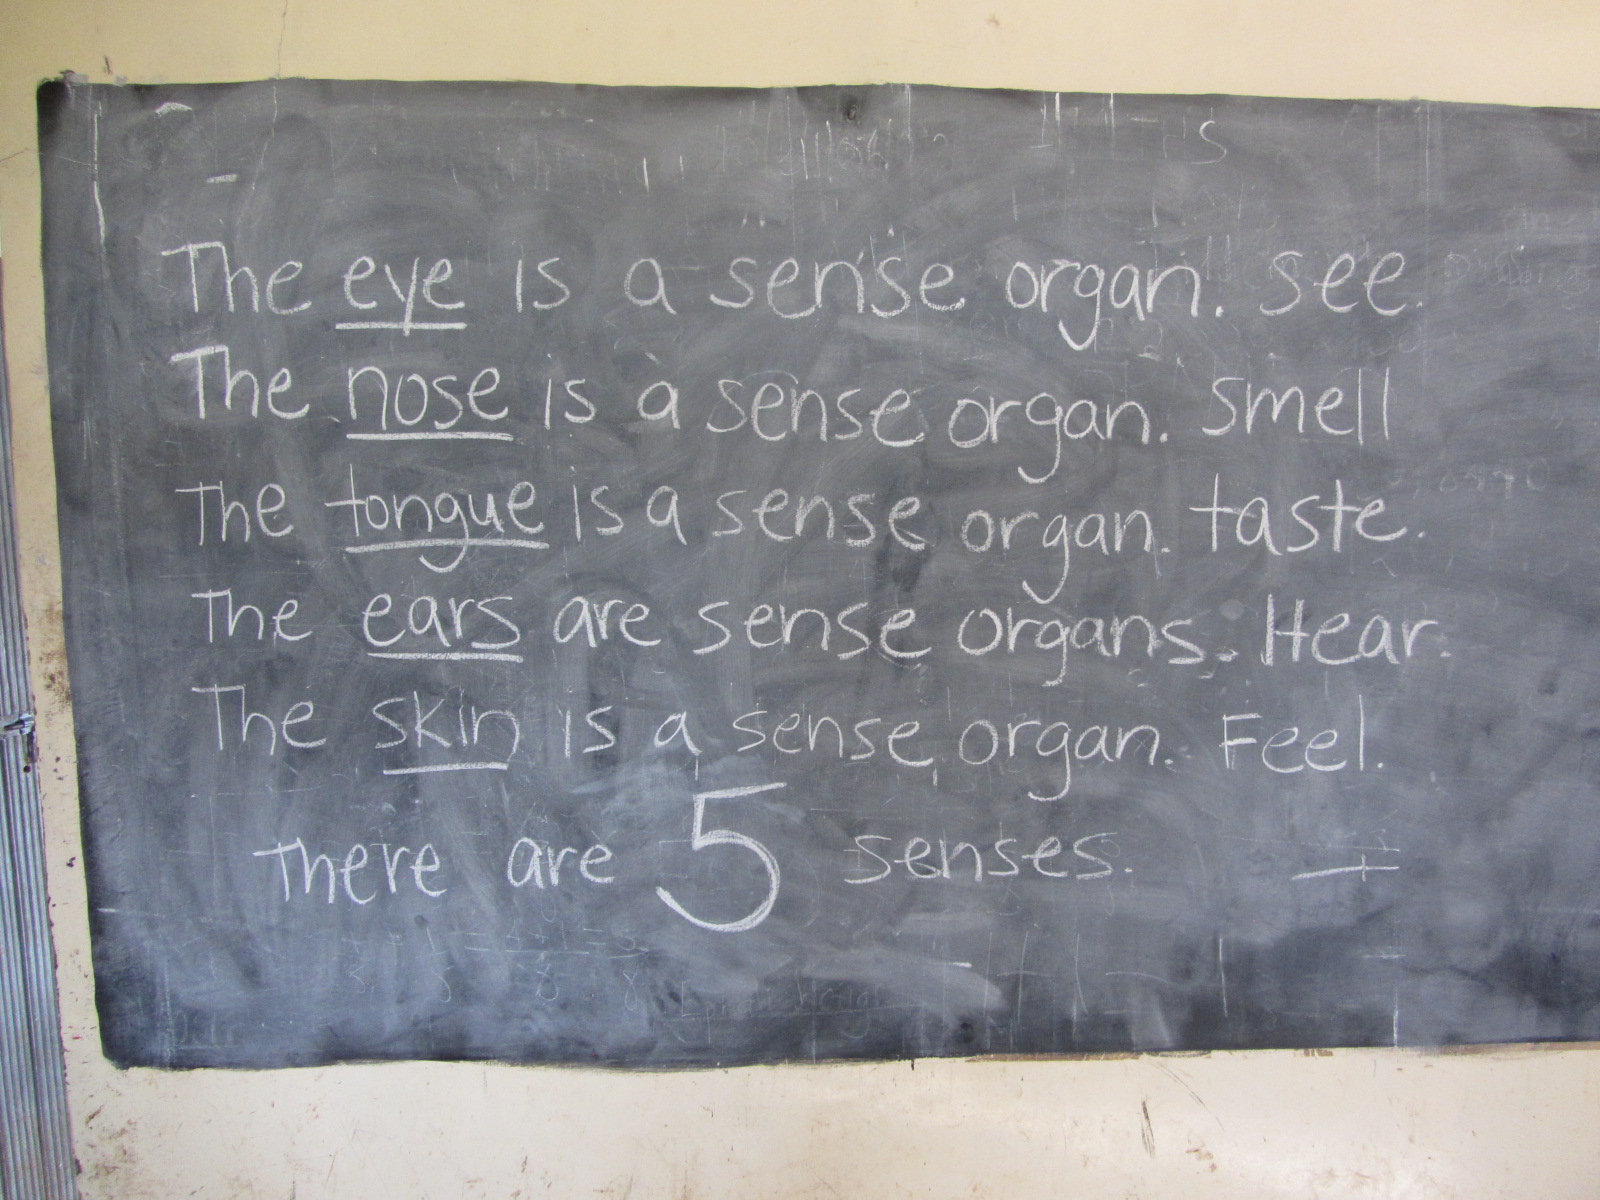 The eye is a sense organ. see.
The nose is a sense organ. smell
The tongue is a sense organ. taste.
The ears are sense organs. Hear.
The skin is a sense organ. Feel.
There are 5 senses.